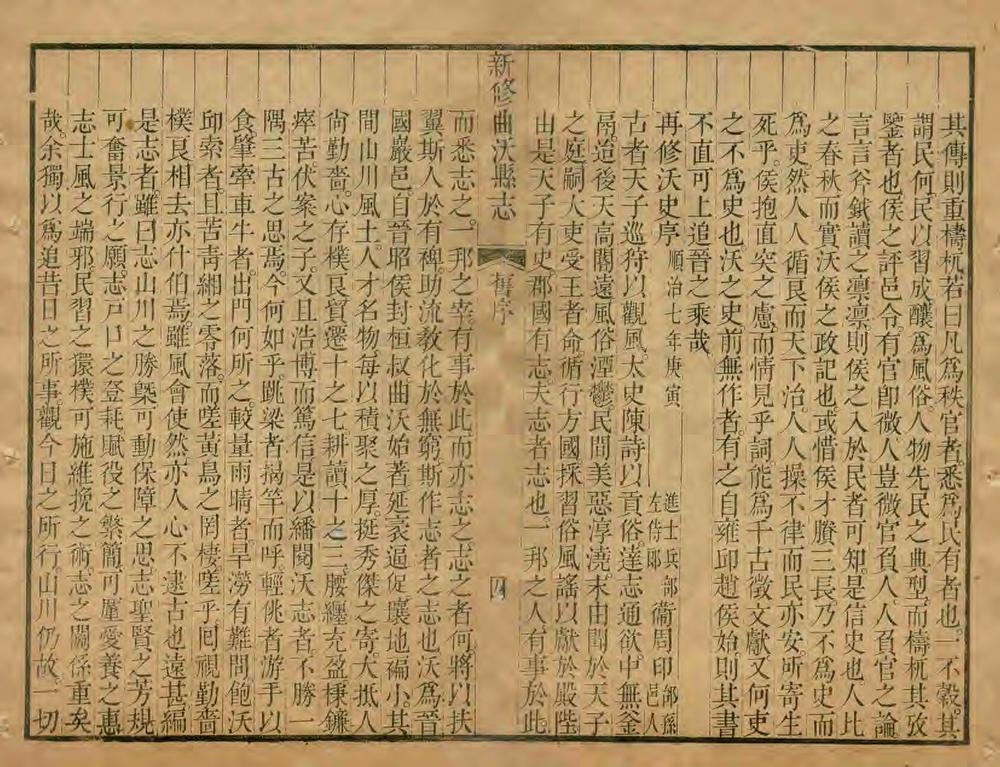 其傳則重檮杌若曰凡爲秩官者悉爲民有者也一不穀其
謂民何民以習成釀爲風俗人物先民之典型而檮杌其攷
鑒者也侯之評邑令有官卽微人豈微官負人人負官之論
言言斧鉞讀之凛凛則侯之入於民者可知是信史也人比
之春秋而實沃侯之政記也或惜侯才賸三長乃不爲史而
爲吏然人人循良而天下治人人操不律而民亦安所寄生
死乎侯抱直突之慮而情見乎詞能爲千古徵文獻又何吏
之不爲史也沃之史前無作者有之自雍邱趙侯始則其書
不直可上追晉之乘哉
再修沃史序 順治七年庚寅 進士兵部左侍郎 衞周印 郇孫邑人
古者天子巡狩以觀風太史陳詩以貢俗達志通欲中無釜
鬲迨後天高閽遠風俗潭鬱民間美惡淳澆末由聞於天子
之庭嗣大吏受王者命循行方國採習俗風謠以獻於殿陛
由是天子有史郡國有志夫志者志也一邦之人有事於此
新修曲沃縣志 舊序 四
而悉志之一邦之幸有事於此而亦志之志之者何將以扶
翼斯人於有碑助流教化於無窮斯作志者之志也沃爲晉
國嚴邑自晉昭侯封桓叔曲沃始著延袤逼促壤地褊小其
間山川風土人才名物每以積聚之厚挺秀傑之寄大抵人
尙勤嗇心存樸良貿遷十之七耕讀十之三腰纏充盈秉鐮
瘁苦伏案之子又且浩博而篤信是以繙閱沃志者不勝一
隅三古之思焉今何如乎跳梁者揭竿而呼輕佻者游手以
食肇牽車牛者出門何所之較量雨晴者旱澇有難問飽沃
邱索者且苦靑緗之零落而嗟黃鳥之罔棲嗟乎囘視勤嗇
樸良相去亦什伯焉雖風會使然亦人心不逮古也遠甚編
是志者雖曰志山川之勝槩可動保障之思志聖賢之芳規
可奮景行之願志戶口之登耗賦役之繁簡可厪愛養之惠
志士風之端邪民習之獧樸可施維挽之術志之關係重矣
哉余獨以爲追昔日之所事觀今日之所行山川仍故一切